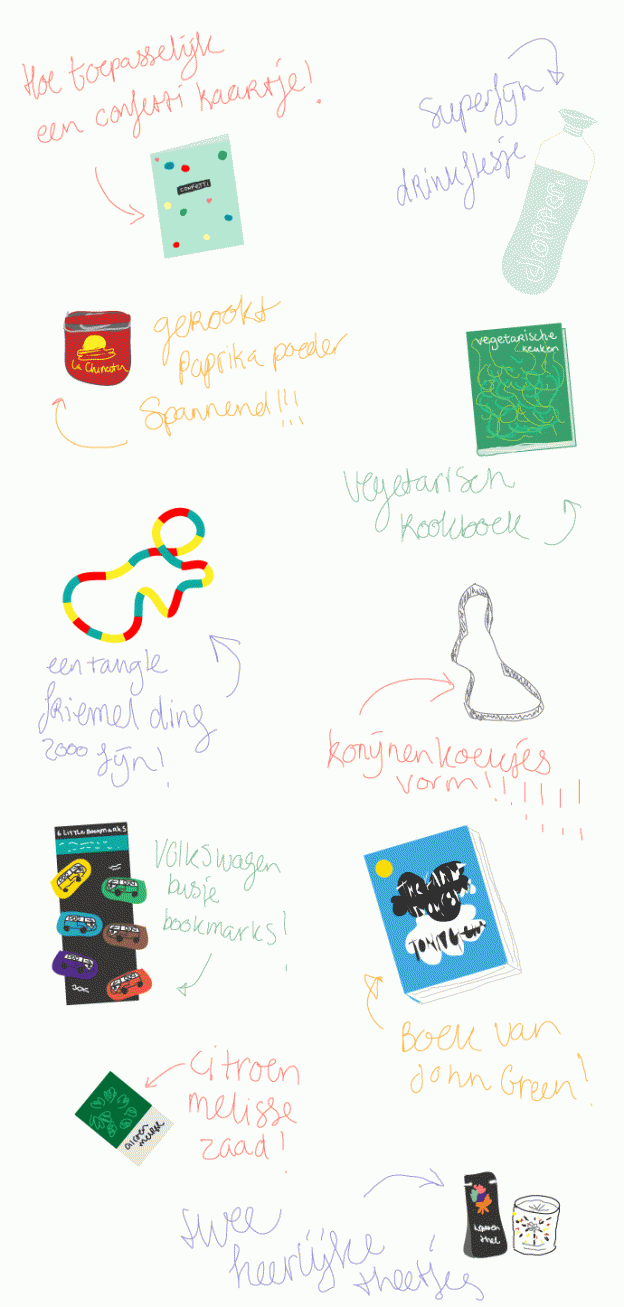 Hoe toepasselijk
een confetti kaartje!
CONFETTI
Superfijn
drinkflesje
dopper
La Chinata
gerookt
Paprika poeder
Spannend!!!
vegetarische
keuken
Vegetarisch
kookboek
een tangle
friemel ding
2000 fijn!
konijnenkoekjes
vorm!!!!!!!
6 Little Bookmarks
Volkswagen
busje
bookmarks!
THE FAULT
IN OUR STARS
JOHN GREEN
Boek van
John Green!
citroen
melisse
citroen
melisse
zaad!
twee
heerlijke
theetjes